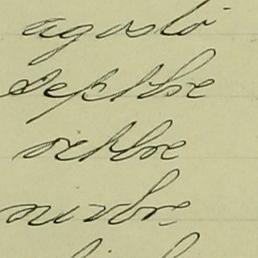 agosto
septbre
octbre
novbre